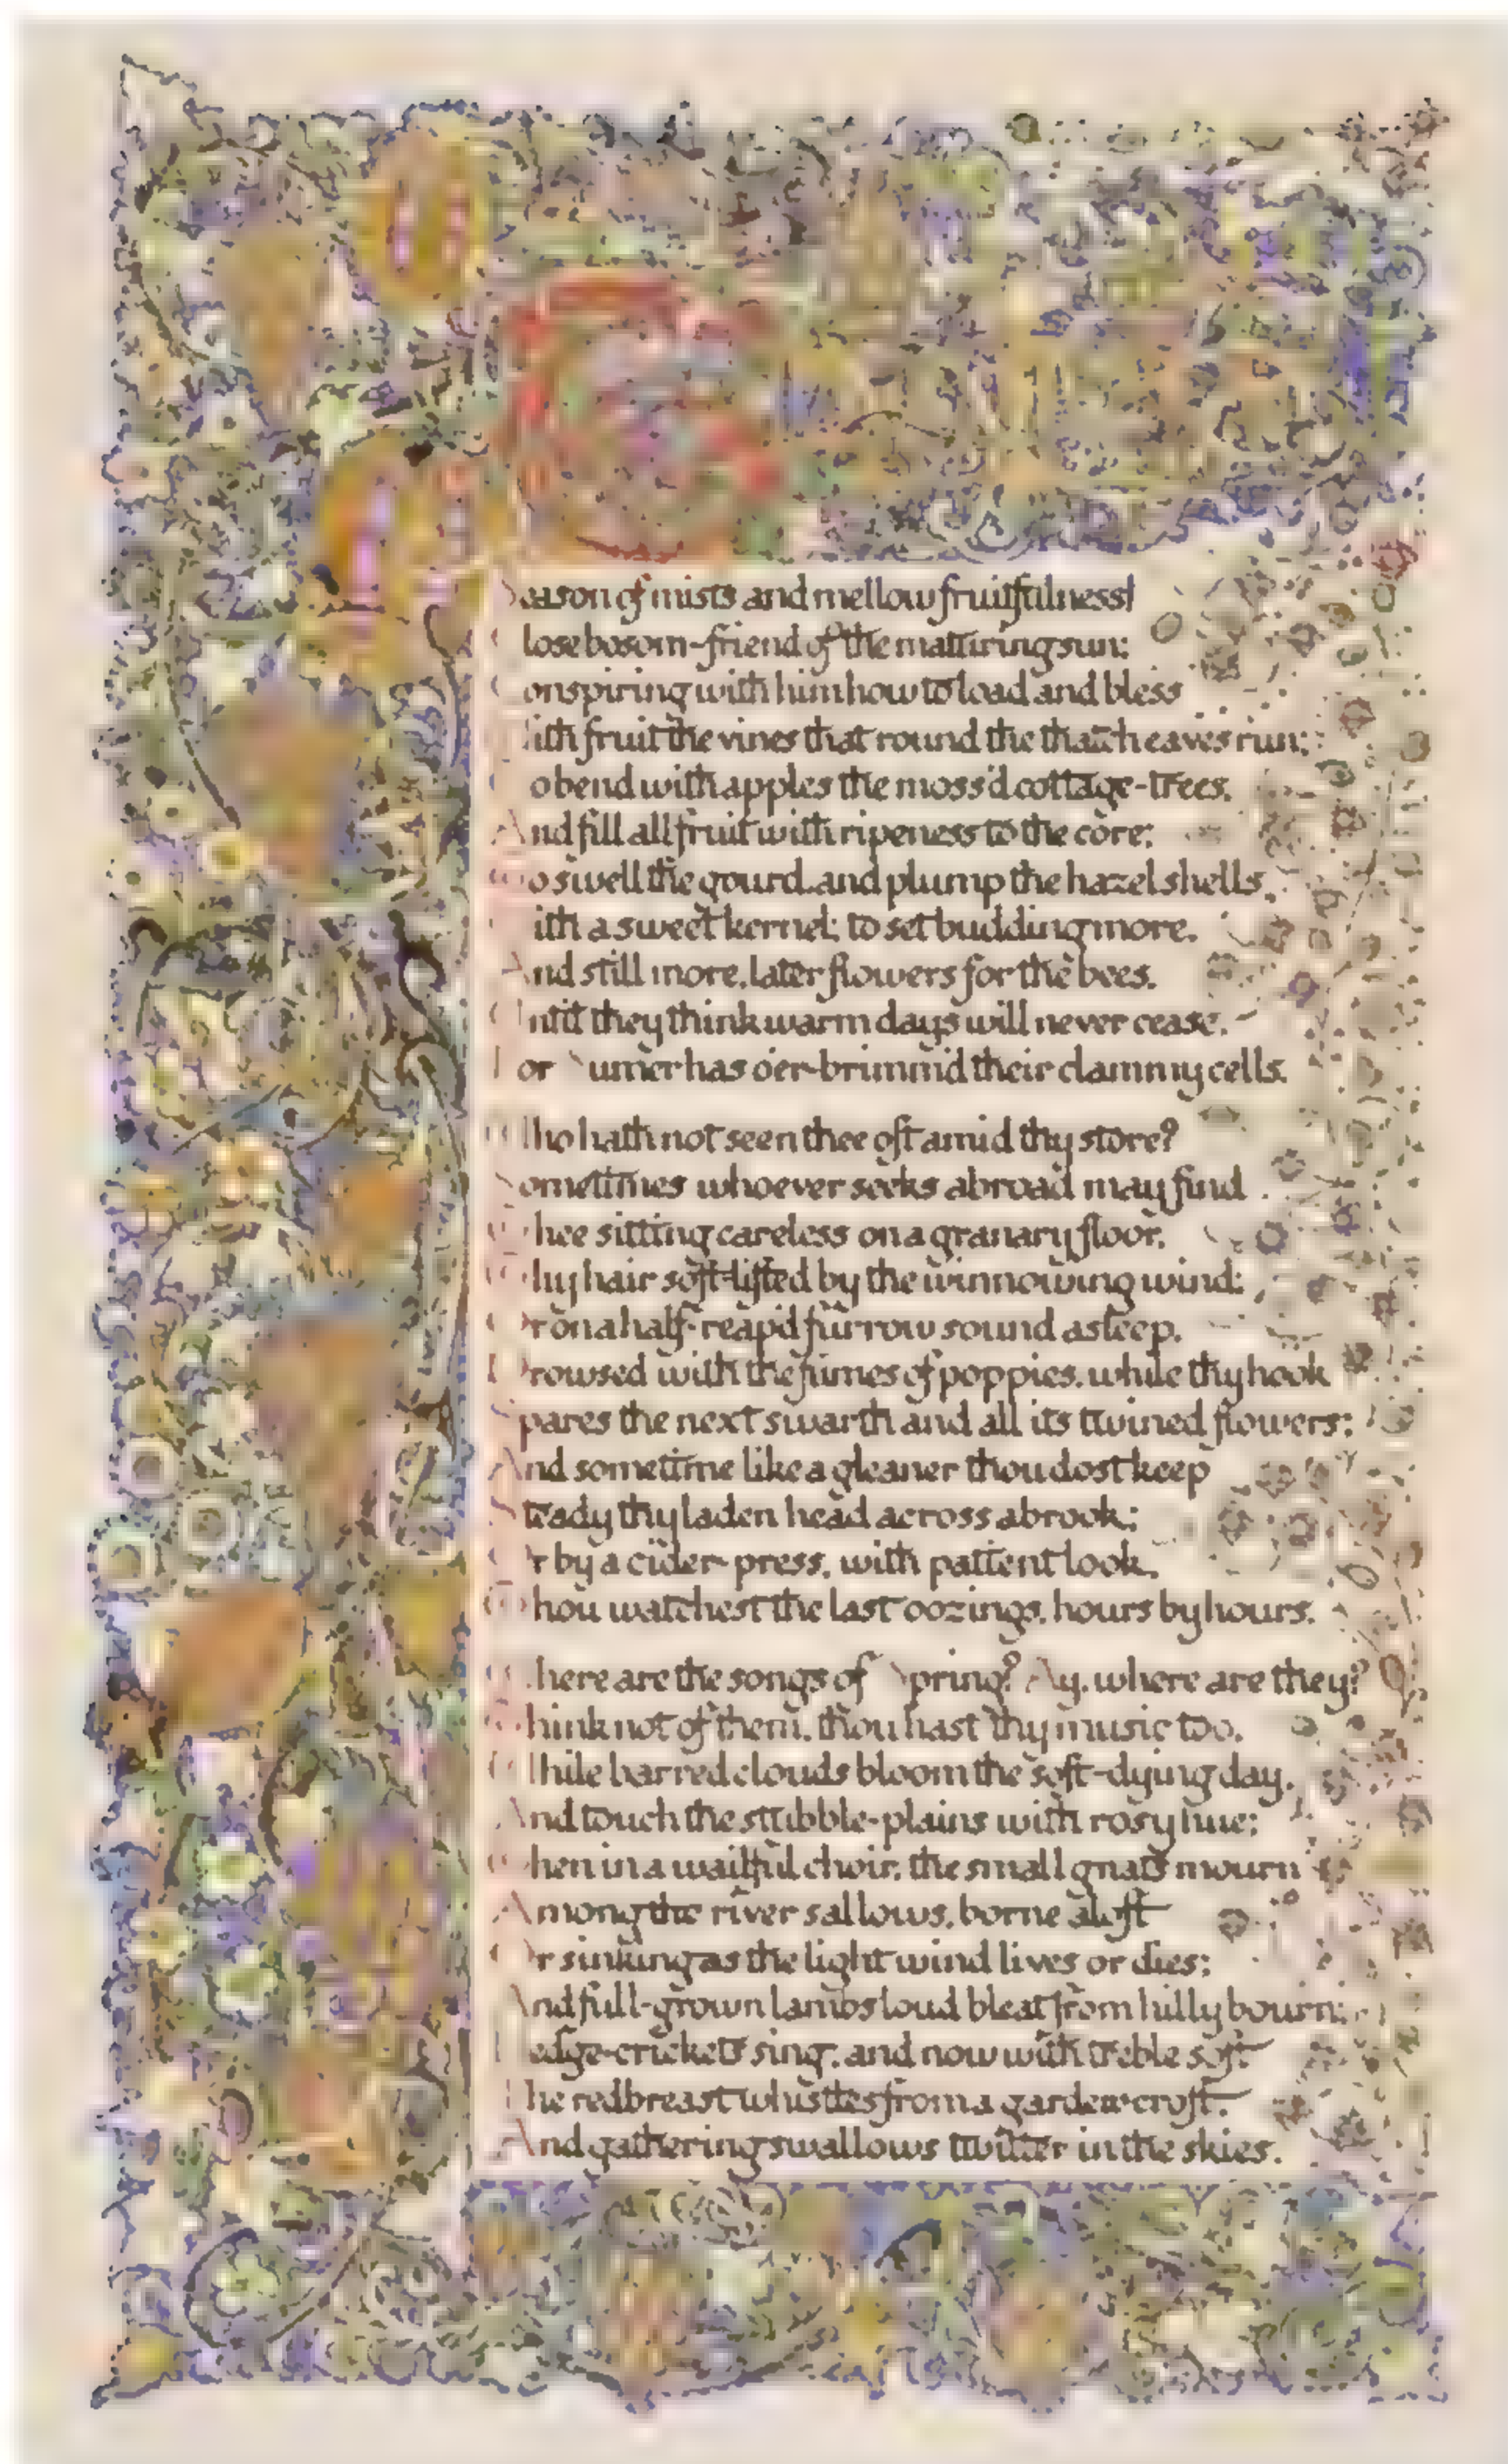 Season of mists and mellow fruitfulness!
Close bosom-friend of the maturing sun;
Conspiring with him how to load and bless
With fruit the vines that round the thatch eaves run;
To bend with apples the moss'd cottage-trees,
And fill all fruit with ripeness to the core;
To swell the gourd, and plump the hazel shells
With a sweet kernel; to set budding more,
And still more, later flowers for the bees,
Until they think warm days will never cease,
For Sumer has o'er-brimm'd their clammy cells.
Who hath not seen thee oft amid thy store?
Sometimes whoever seeks abroad may find
Thee sitting careless on a granary floor,
Thy hair soft-lifted by the winnowing wind;
Or on a half-reap'd furrow sound asleep,
Drowsed with the fumes of poppies, while thy hook
Spares the next swarth and all its twined flowers;
And sometime like a gleaner thou dost keep
Steady thy laden head across a brook;
Or by a cider-press, with patient look,
Thou watchest the last oozings, hours by hours.
Where are the songs of Spring? Ay, where are they?
Think not of them, thou hast thy music too,
While barred clouds bloom the soft-dying day,
And touch the stubble-plains with rosy hue;
Then in a wailful choir, the small gnats mourn
Among the river sallows, borne aloft
Or sinking as the light wind lives or dies;
And full-grown lambs loud bleat from hilly bourn;
Hedge-crickets sing, and now with treble soft
The redbreast whistles from a garden-croft,
And gathering swallows twitter in the skies.